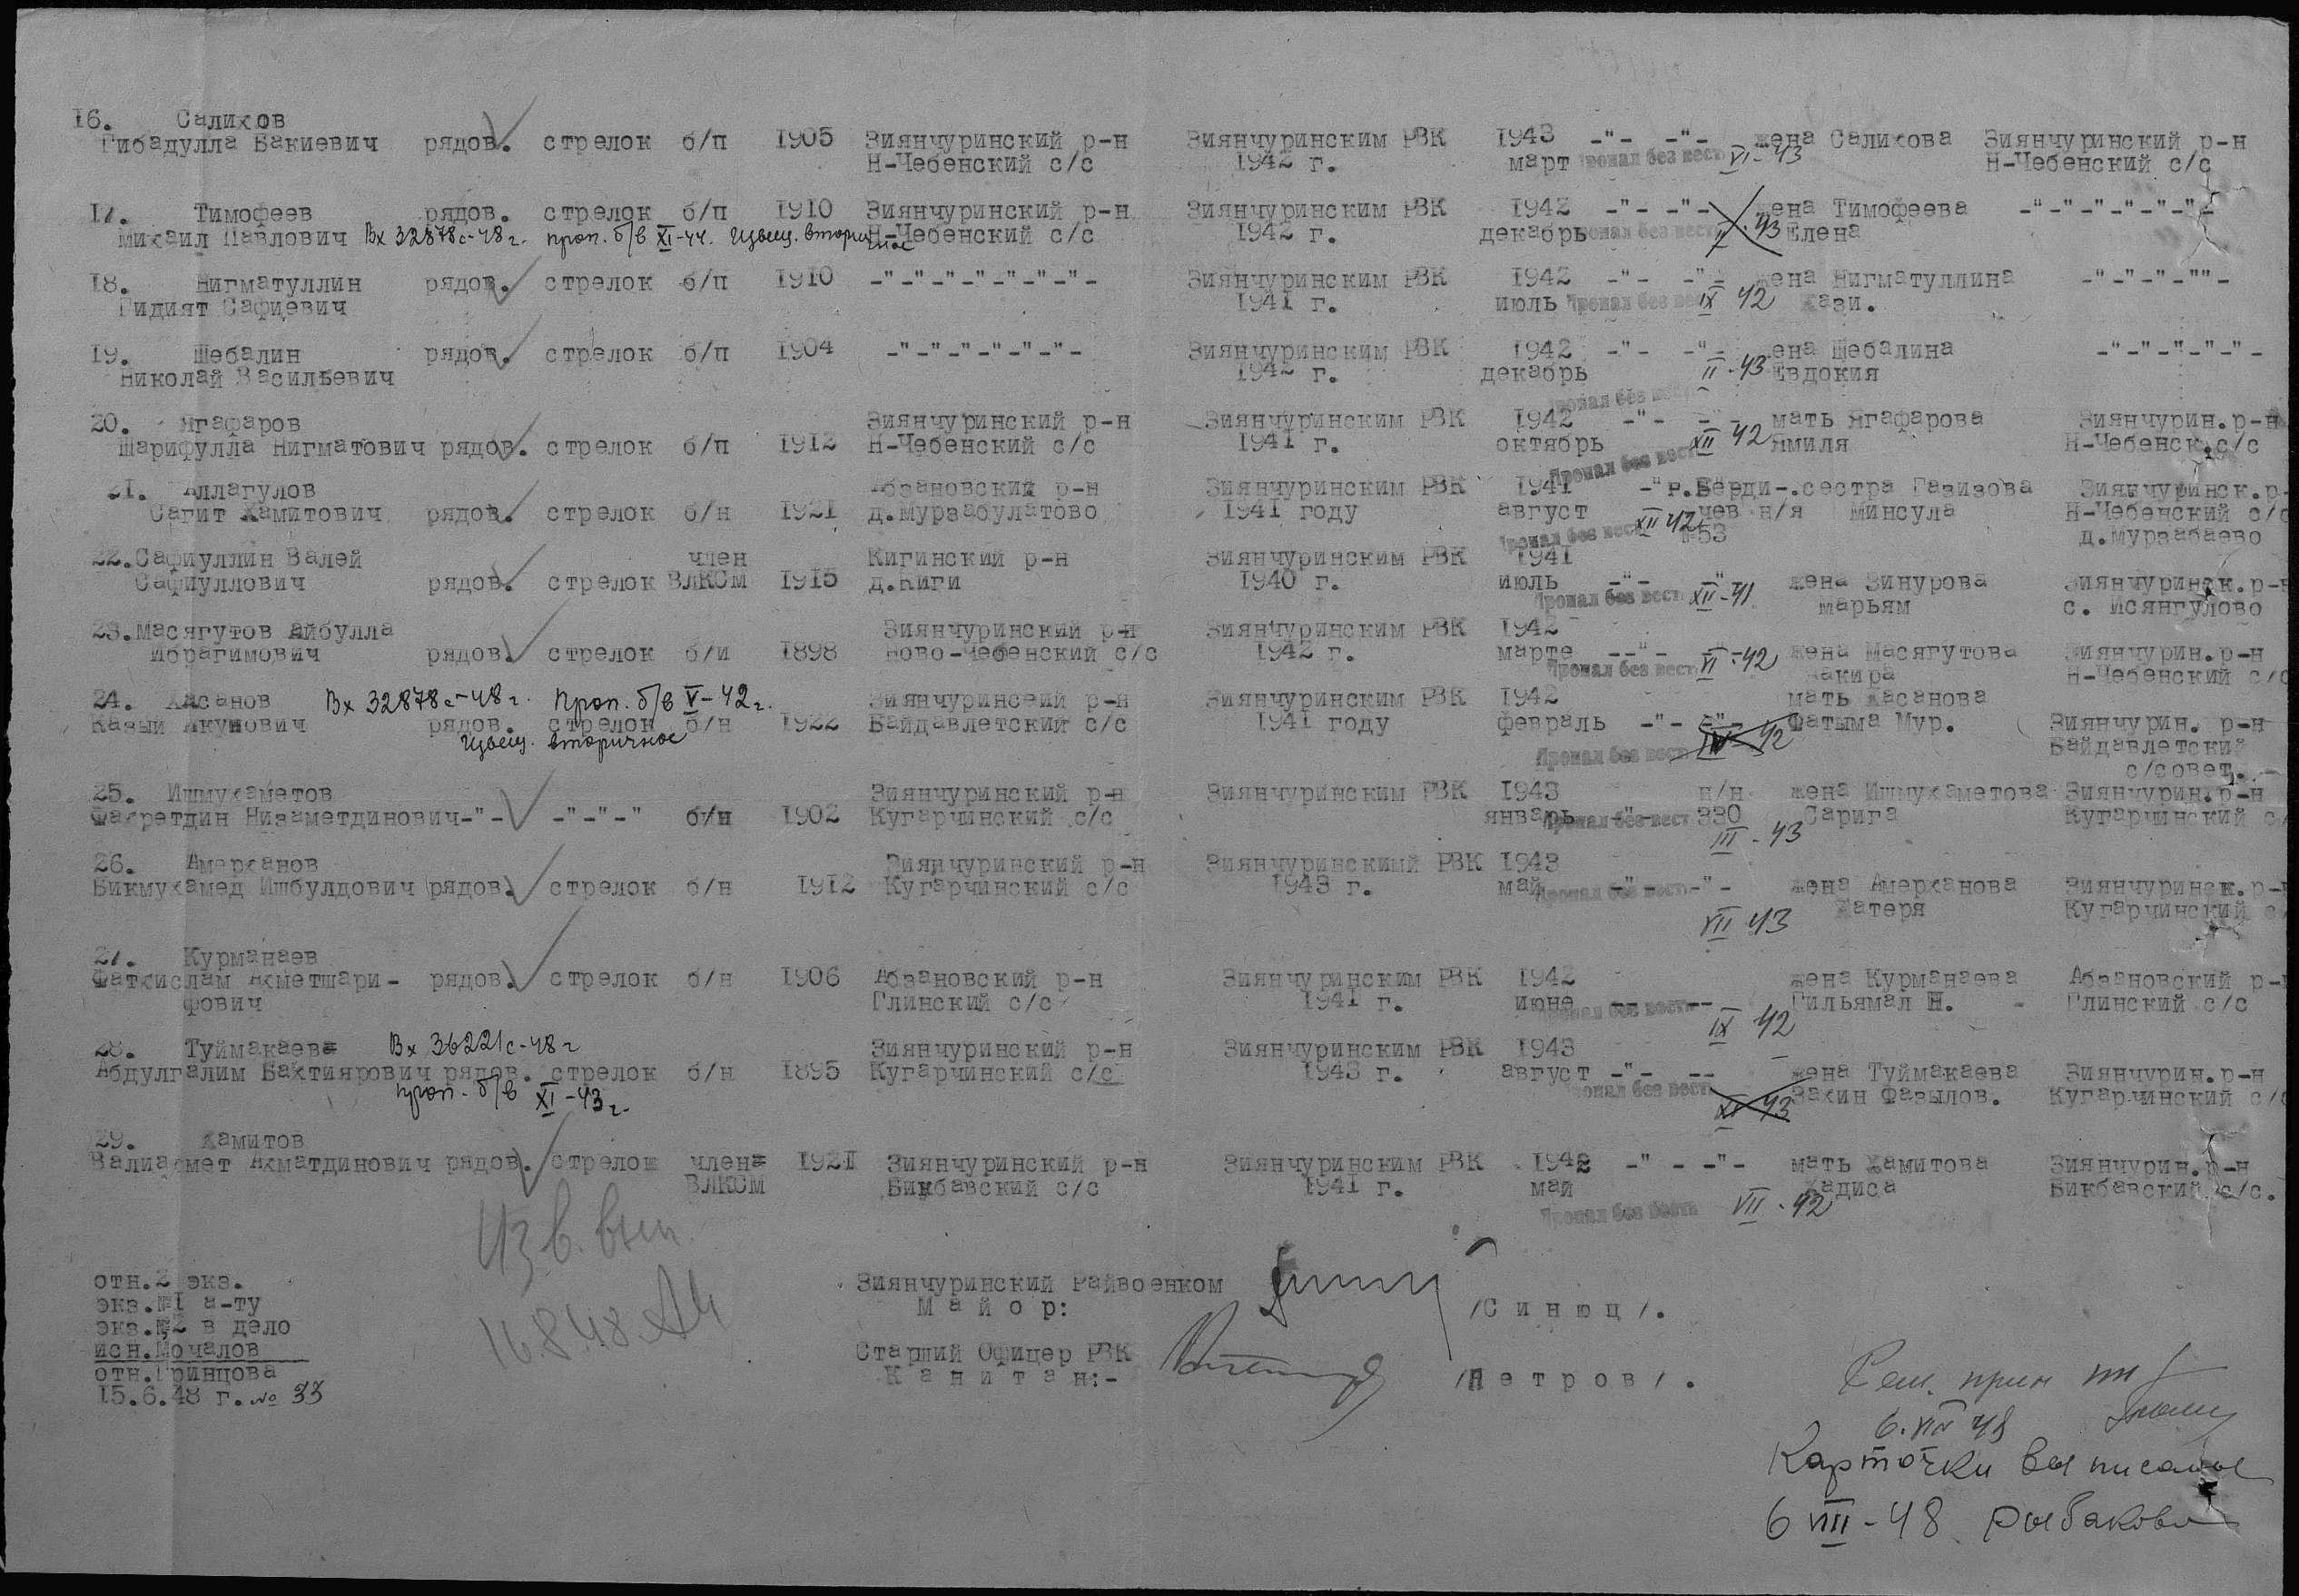 16. Салихов
Гибадулла Бакиевич рядов. стрелок б/п 1905 Зиянчуринский р-н Зиянчуринским РВК 1943 -"- -"- жена Салихова Зиянчуринский р-н
Н-Чебенский с/с 1942 г. март Пропал без вести VI-43 Н-Чебенский с/с
17. Тимофеев рядов. стрелок б/п 1910 Зиянчуринский р-н Зиянчуринским РВК 1942 -"- -"- жена Тимофеева -"-"-"-"-"-"-
Михаил Павлович Вх 32878с-48г. проп. б/в XI-44. Извещ. вторичное Н-Чебенский с/с 1942 г. декабрь Пропал без вести II-43 Елена
18. Нигматуллин рядов. стрелок б/п 1910 -"-"-"-"-"-"-"- Зиянчуринским РВК 1942 -"- -"- жена Нигматуллина -"-"-"-""-
Гидият Сафиевич 1941 г. июль Пропал без вести IX 42 Кази.
19. Шебалин рядов. стрелок б/п 1904 -"-"-"-"-"-"- Зиянчуринским РВК 1942 -"- -"- жена Шебалина -"-"-"-"-"-
Николай Васильевич 1942 г. декабрь II-43 Евдокия
Пропал без вести
20. Ягафаров Зиянчуринский р-н Зиянчуринским РВК 1942 -"- -"- мать Ягафарова Зиянчурин.р-н
Шарифулла Нигматович рядов. стрелок б/п 1912 Н-Чебенский с/с 1941 г. октябрь XII 42 Ямиля Н-Чебенск.с/с
Пропал без вести
21. Аллагулов Абзановский р-н Зиянчуринским РВК 1941 -"- г.Берди-.сестра Газизова Зиянчуринск.р-
Сагит Хамитович рядов. стрелок б/н 1921 д.Мурзабулатово 1941 году август чев п/я Минсула Н-Чебенский с/с
Пропал без вести XII 42 №53 д.Мурзабаево
22.Сафиуллин Валей член Кигинский р-н Зиянчуринским РВК 1941
Сафиуллович рядов. стрелок ВЛКСМ 1915 д.Киги 1940 г. июль -"- -"- жена Зинурова Зиянчуринск.р-н
Пропал без вести XII-41 марьям с. Исянгулово
23.Масягутов Айбулла Зиянчуринский р-н Зиянчуринским РВК 1942
Ибрагимович рядов. стрелок б/и 1898 Ново-Чебенский с/с 1942 г. марте --"- -"- жена Масягутова Зиянчурин.р-н
Пропал без вести VI-42 Закира Н-Чебенский с/с
24. Хасанов Вх 32878с-48г. Проп. б/в V-42г. Зиянчуринсеий р-н Зиянчуринским РВК 1942 мать Хасанова
Казый Якупович рядов. стрелок б/н 1922 Байдавлетский с/с 1941 году февраль -"- -"- Фатыма Мур. Зиянчурин. р-н
Извещ. вторичное Пропал без вести IV 42 Байдавлетский
с/совет.
25. Ишмухаметов Зиянчуринский р-н Зиянчуринским РВК 1943 п/н жена Ишмухаметова Зиянчурин.р-н
Фахретдин Низаметдинович-"- -"-"-" б/н 1902 Кугарчинский с/с январь -"- 330 Сарига Кугарчинский с/
Пропал без вести III-43
26. Амерханов Зиянчуринский р-н Зиянчуринскимй РВК 1943
Бикмухамед Ишбулдович рядов. стрелок б/н 1912 Кугарчинский с/с 1943 г. май -"- -"- жена Амерханова Зиянчуринск.р-н
Пропал без вести VII 43 Катеря Кугарчинский с/
27. Курманаев
Фатхислам Ахметшари- рядов. стрелок б/н 1906 Абзановский р-н Зиянчуринским РВК 1942 жена Курманаева Абзановский р-н
фович Глинский с/с 1941 г. июне Пропал без вести Гильямал Н. Глинский с/с
IX 42
28. Туймакаев Вх 36221с-48г Зиянчуринский р-н Зиянчуринским РВК 1943
Абдулгалим Бактиярович рядов. стрелок б/н 1895 Кугарчинский с/с 1943 г. август -"- -- жена Туймакаева Зиянчурин.р-н
проп. б/в XI-43г. Пропал без вести XI 43 Закин Фазылов. Кугарчинский с/с
29. Хамитов
Валиахмет Ахматдинович рядов. стрелок член ВЛКСМ 1921 Зиянчуринский р-н Зиянчуринским РВК 1942 -" - -"- мать Хамитова Зиянчурин.р-н
Бикбавский с/с 1941 г. май Хадиса Бикбавский с/с.
Пропал без вести VII-42
Изв. вып.
16.8.48
отн.2 экз.
экз.№1 а-ту
экз.№2 в дело
исп.Мочалов
отп.Гринцова
15.6.48 г. № 33
Зиянчуринский Райвоенком
Майор: /Синюц/.
Старший Офицер РВК
Капитан:- /Петров/.
6.VIII 48
Карточки выписаны
6 VIII-48 Рыбакова